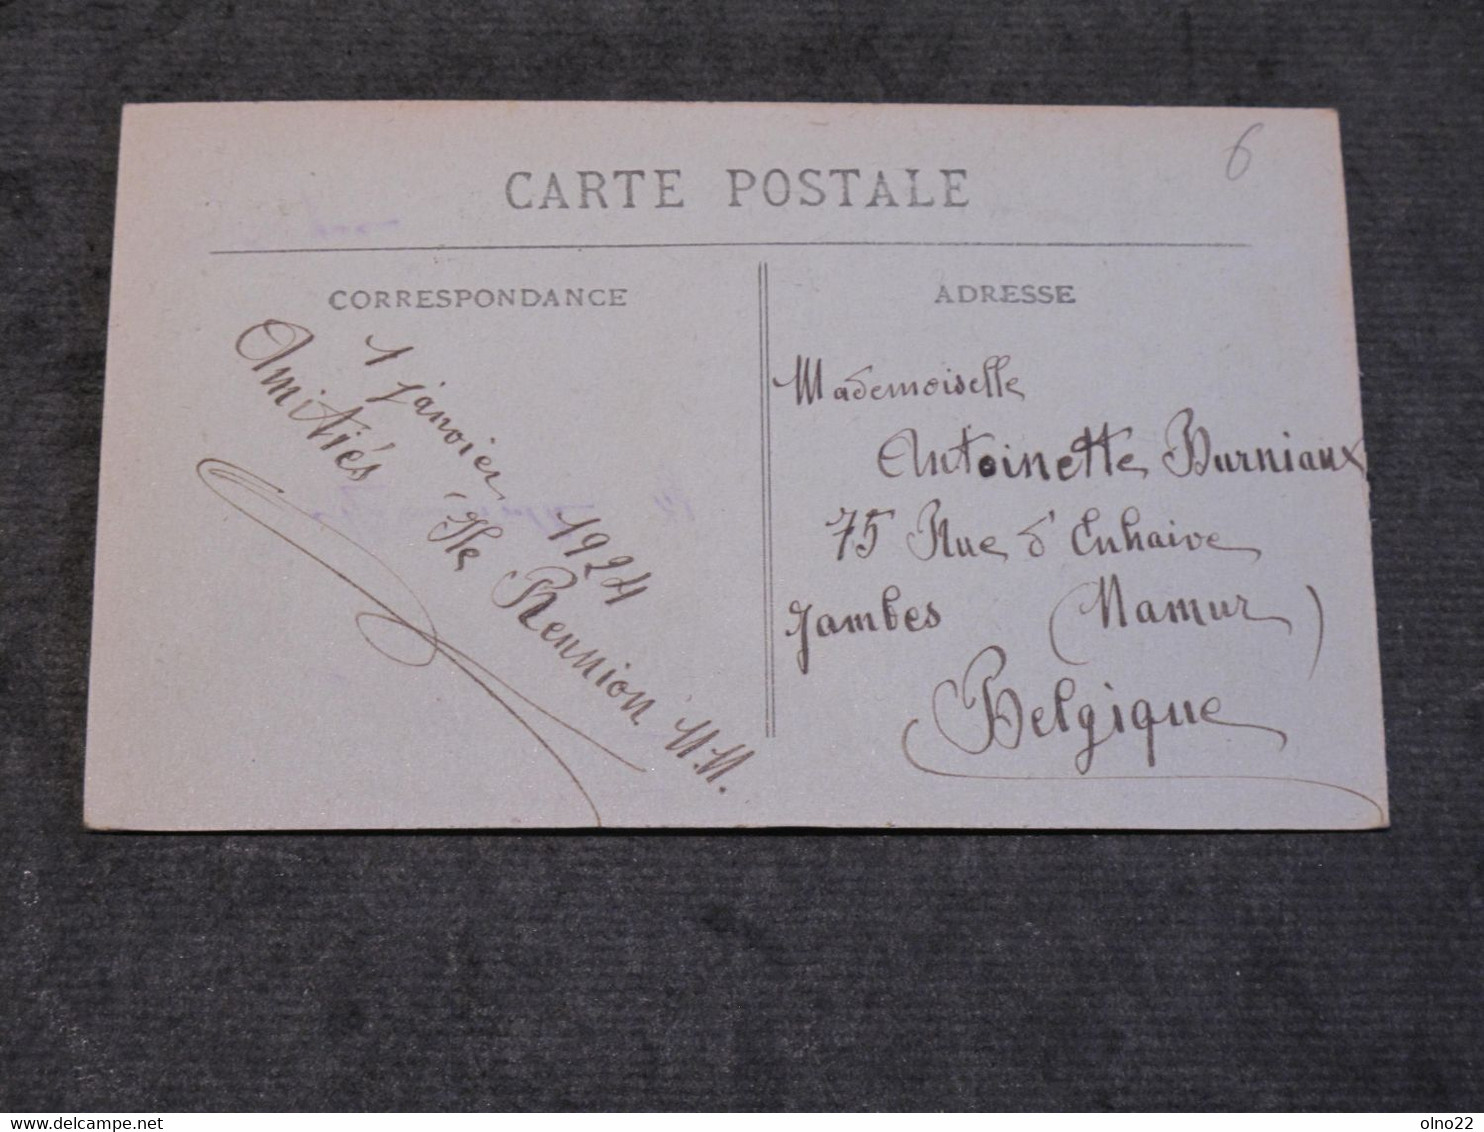 6
CARTE POSTALE
CORRESPONDANCE
1 janvier 1924
Amitiés Ile Reunion M.M.
ADRESSE
Mademoiselle
Antoinette Burniaux
75 Rue d'Enhaive
Jambes (Namur)
Belgique
delcampe.net
olno22